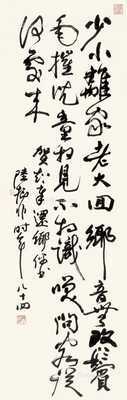 少小離家老大回鄉音無改鬢
毛摧兒童相見不相識笑問客從
何處來
賀知章還鄉
陸 时年八十四